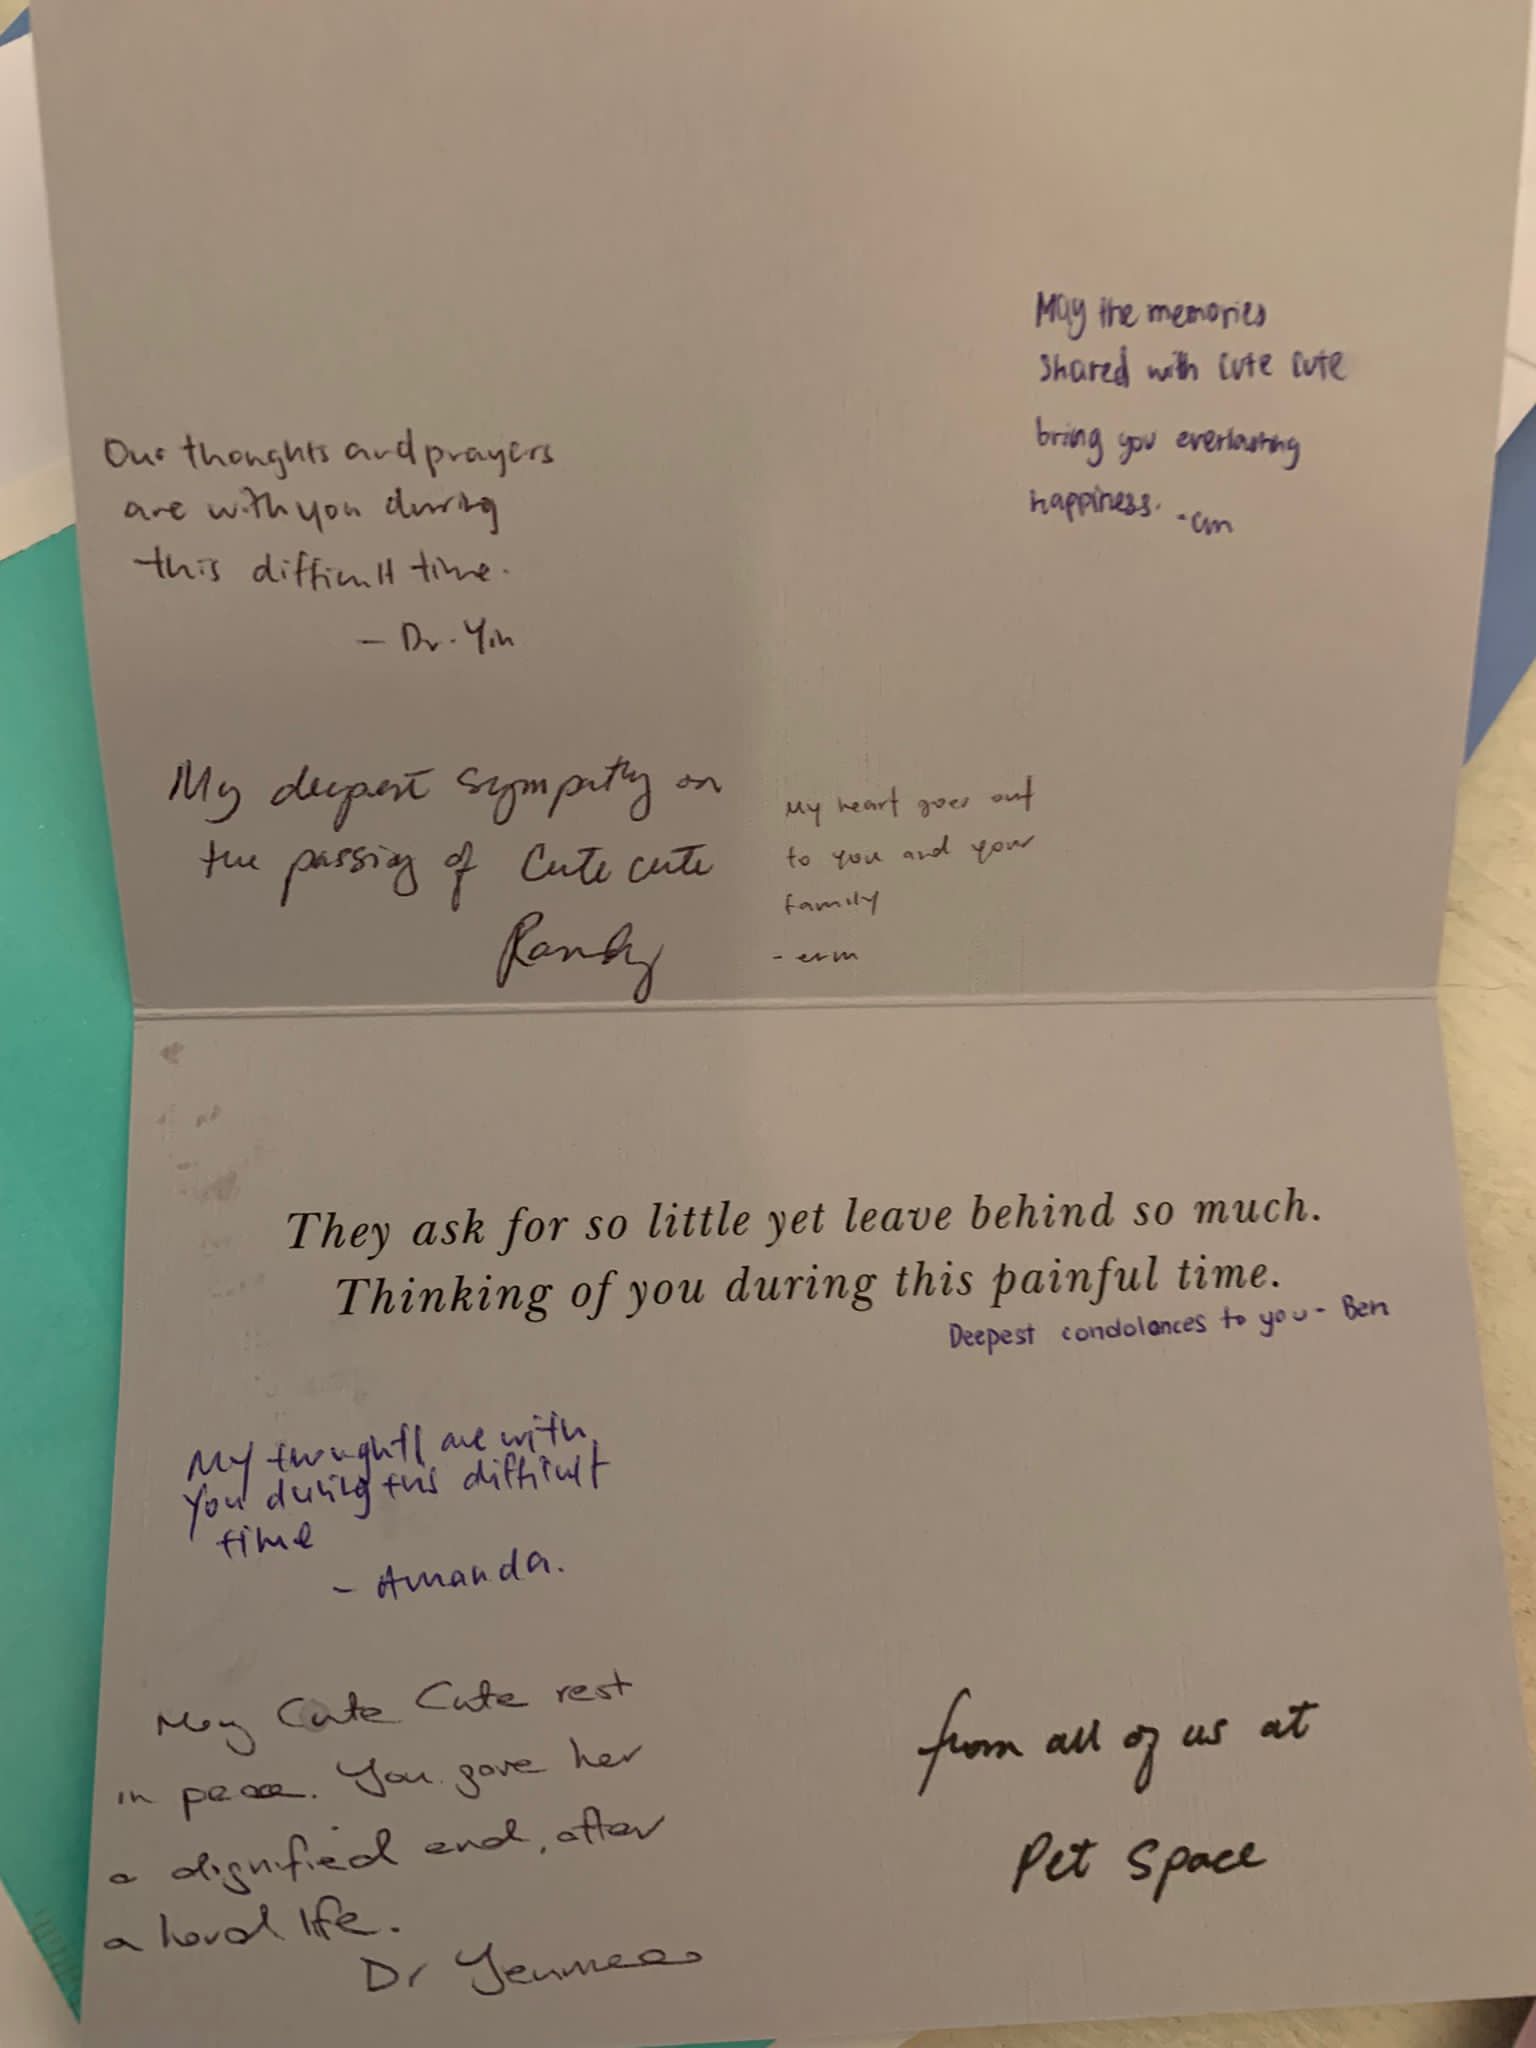 May the memories
shared with Cute Cute
bring you everlasting
happiness.
Our thoughts and prayers
are with you during
this difficult time.
- Dr. Yin
My deepest sympathy on
the passing of Cute cute
Randy
My heart goes out
to you and your
family
They ask for so little yet leave behind so much.
Thinking of you during this painful time.
Deepest condolances to you - Ben
My thoughts are with
you during this difficult
time
- Amanda.
May Cute Cute rest
in peace. You gave her
a dignified end, after
a hard life.
Dr
from all of us at
Pet Space